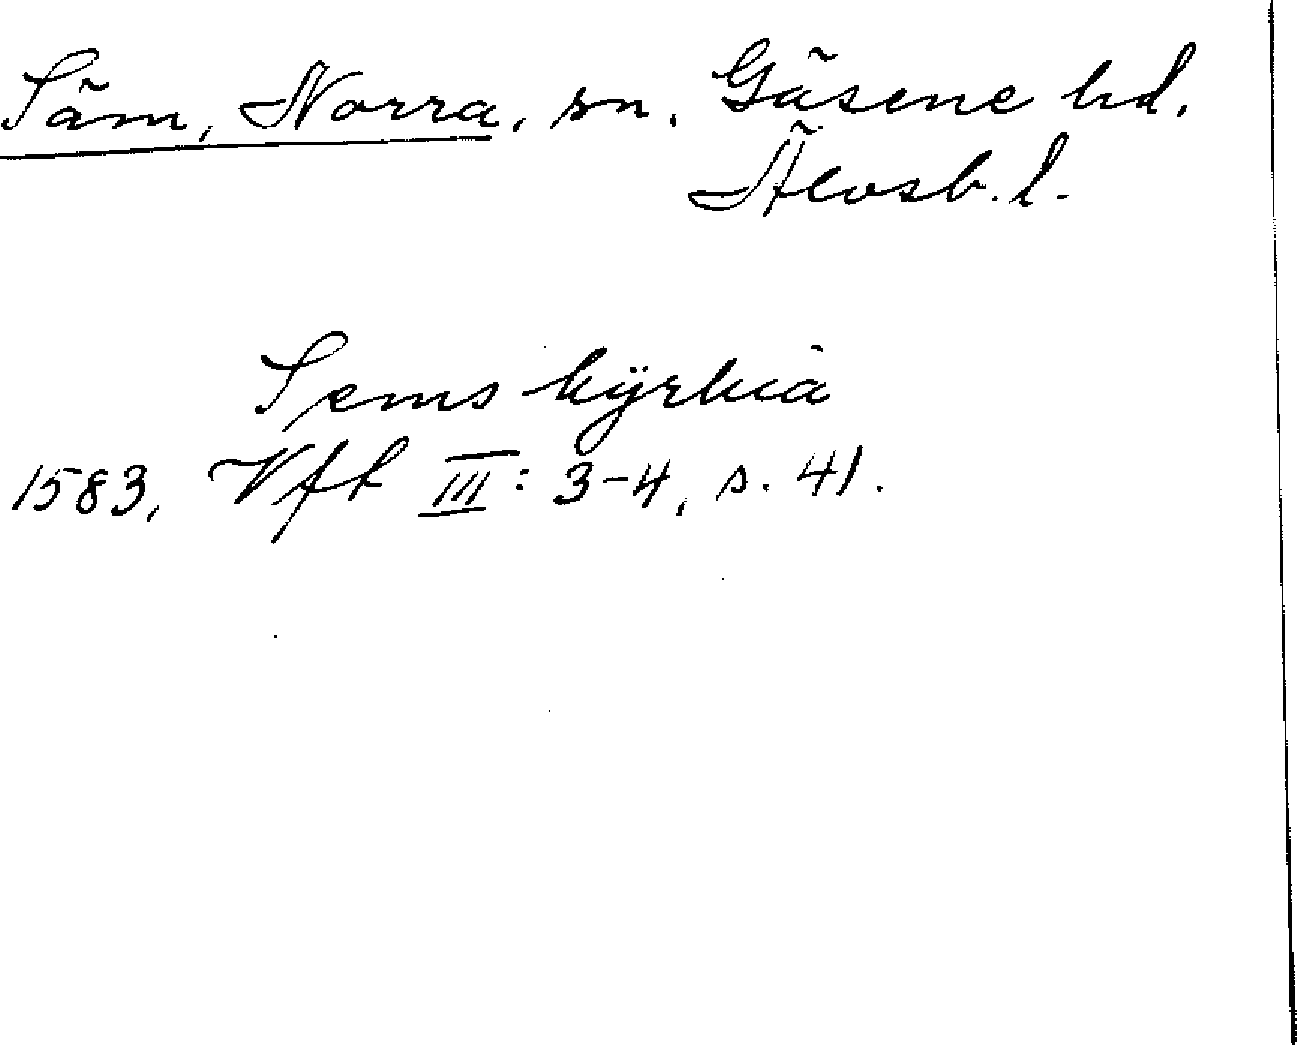 Säm, Norra, sn. Gäsene hd.
Älvsb. l.
Sems kÿrkia
1583, Vfk III: 3-4, s. 41.